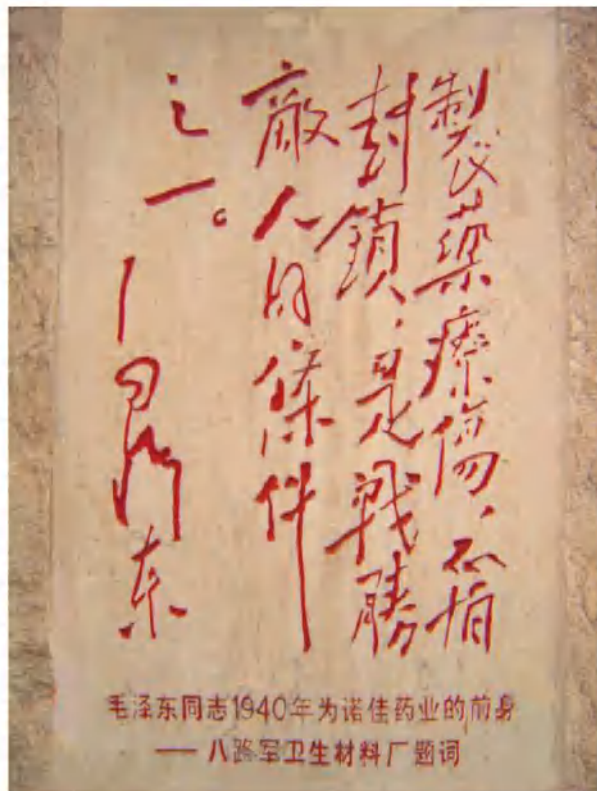 製药療傷、不怕
封鎖、是戰勝
敵人的條件
之一。
毛澤东
毛泽东同志1940年为诺佳药业的前身
—— 八路军卫生材料厂题词